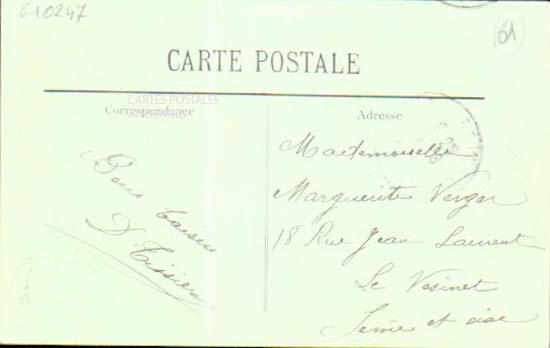 610247
61
CARTE POSTALE
CARTES POSTALES
Correspondance
Adresse
Bons baisers
D. Tissier
Mademoiselle
Marguerite Verger
18 Rue Jean Laurent
Le Vesinet
Seine et oise